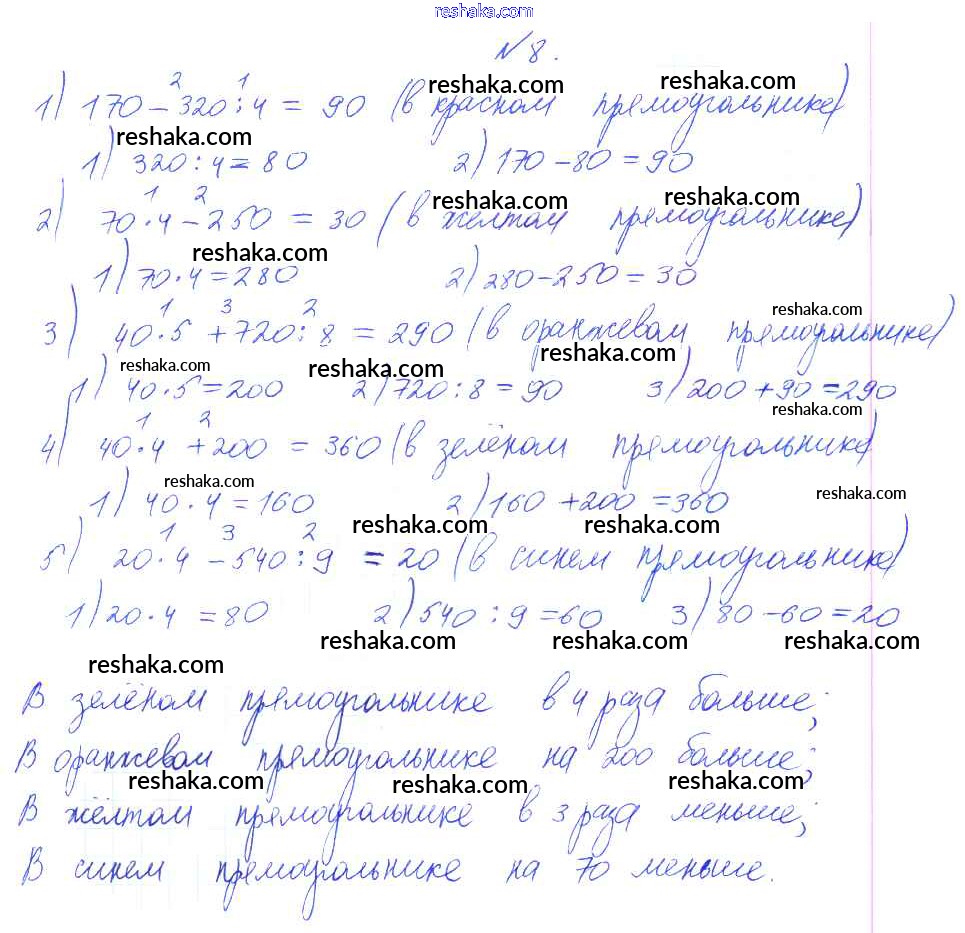 reshaka.com
№8.
reshaka.com reshaka.com
2 1
1) 170 - 320 : 4 = 90 (в красном прямоугольнике)
reshaka.com
1) 320 : 4 = 80 2) 170 - 80 = 90
1 2 reshaka.com reshaka.com
2) 70 · 4 - 250 = 30 (в жёлтом прямоугольнике)
reshaka.com
1) 70 · 4 = 280 2) 280 - 250 = 30
1 3 2 reshaka.com
3) 40 · 5 + 720 : 8 = 290 (в оранжевом прямоугольнике)
reshaka.com reshaka.com reshaka.com
1) 40 · 5 = 200 2) 720 : 8 = 90 3) 200 + 90 = 290
1 2 reshaka.com
4) 40 · 4 + 200 = 360 (в зелёном прямоугольнике)
reshaka.com reshaka.com
1) 40 · 4 = 160 2) 160 + 200 = 360
1 3 2 reshaka.com reshaka.com
5) 20 · 4 - 540 : 9 = 20 (в синем прямоугольнике)
1) 20 · 4 = 80 2) 540 : 9 = 60 3) 80 - 60 = 20
reshaka.com reshaka.com reshaka.com
reshaka.com
В зелёном прямоугольнике в 4 раза больше;
В оранжевом прямоугольнике на 200 больше;
reshaka.com reshaka.com reshaka.com
В жёлтом прямоугольнике в 3 раза меньше;
В синем прямоугольнике на 70 меньше.